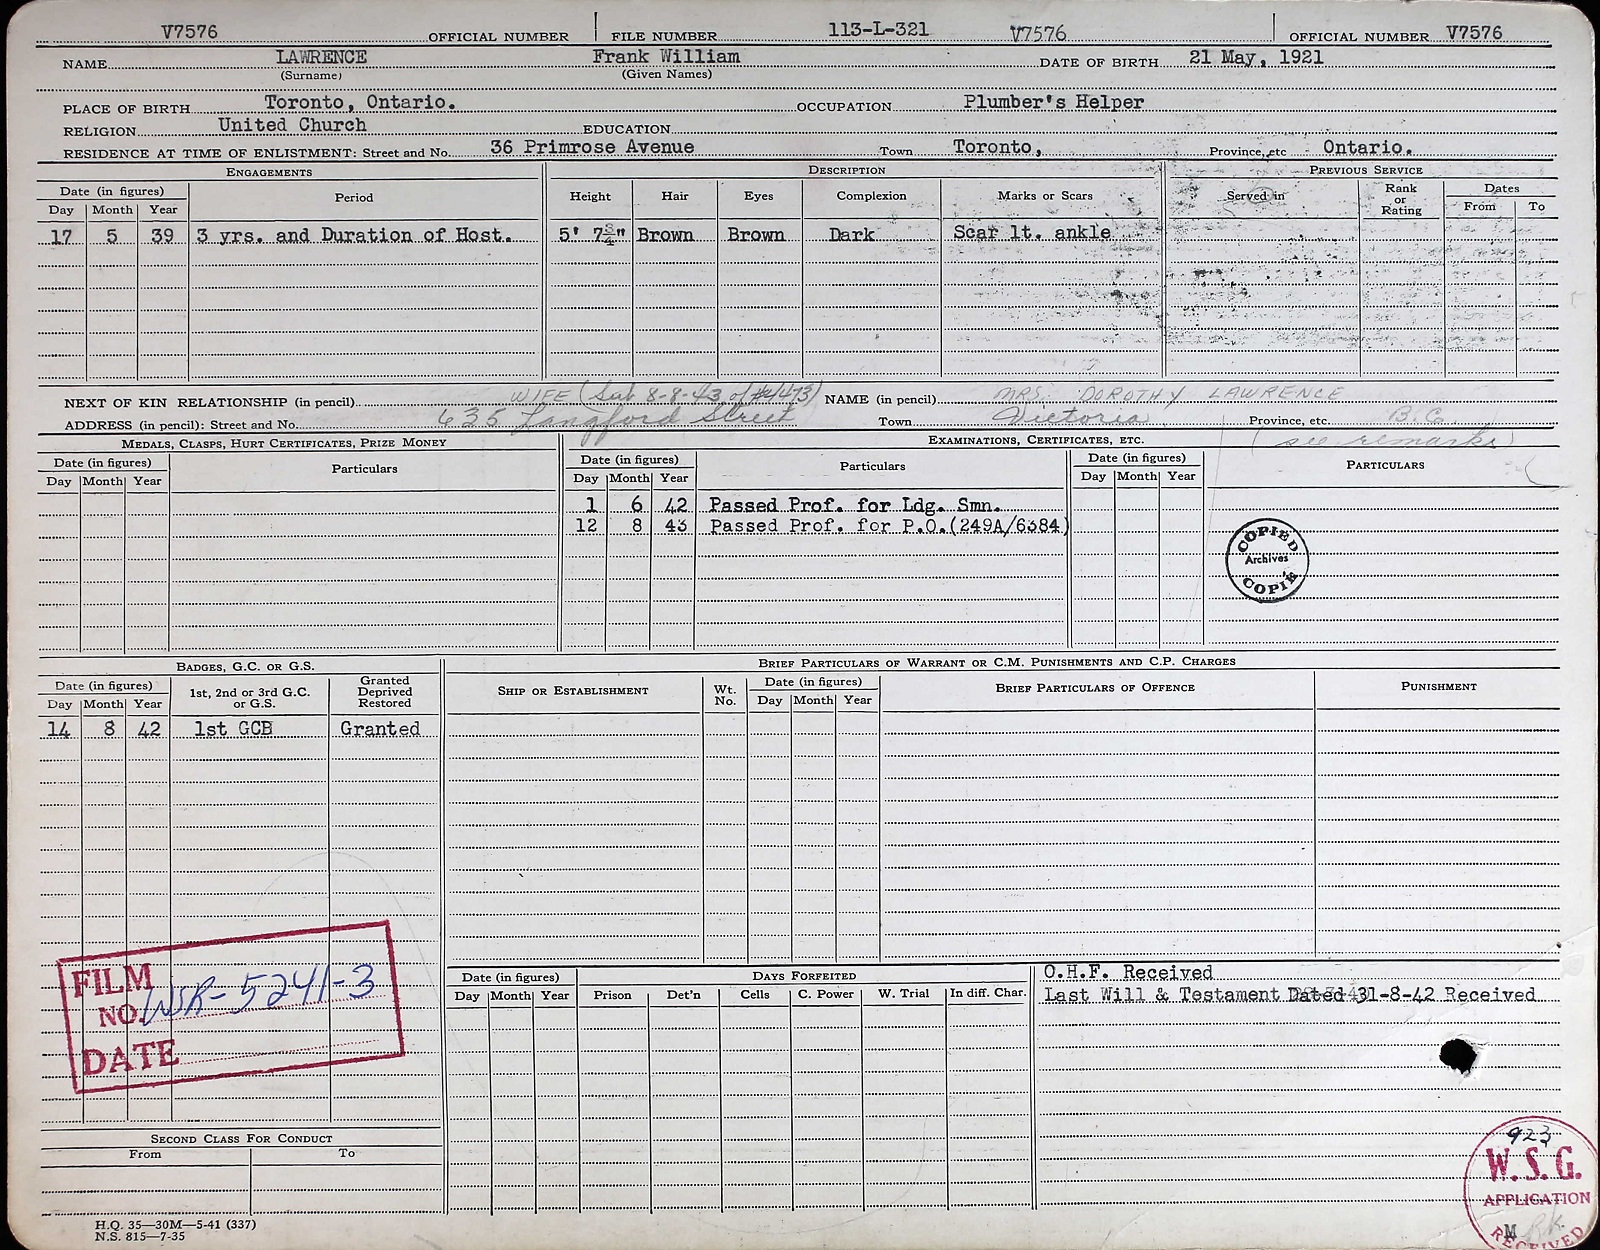 V7576 OFFICIAL NUMBER FILE NUMBER 113-L-321 V7576 OFFICIAL NUMBER V7576
NAME LAWRENCE Frank William DATE OF BIRTH 21 May, 1921
(Surname) (Given Names)
PLACE OF BIRTH Toronto, Ontario. OCCUPATION Plumber's Helper
RELIGION United Church EDUCATION
RESIDENCE AT TIME OF ENLISTMENT: Street and No. 36 Primrose Avenue Town Toronto, Province, etc Ontario.
ENGAGEMENTS DESCRIPTION PREVIOUS SERVICE
Date (in figures) Period Height Hair Eyes Complexion Marks or Scars Served in Rank or Rating Dates
Day Month Year From To
17 5 39 3 yrs. and Duration of Host. 5' 7¾" Brown Brown Dark Scar lt. ankle
NEXT OF KIN RELATIONSHIP (in pencil) WIFE (Sub 8-8-43 of #4473) NAME (in pencil) MRS. DOROTHY LAWRENCE
ADDRESS (in pencil): Street and No. 635 Langford Street Town Victoria Province, etc. B.C.
(see remarks)
MEDALS, CLASPS, HURT CERTIFICATES, PRIZE MONEY EXAMINATIONS, CERTIFICATES, ETC.
Date (in figures) Particulars Date (in figures) Particulars Date (in figures) PARTICULARS
Day Month Year Day Month Year Day Month Year
1 6 42 Passed Prof. for Ldg. Smn.
12 8 43 Passed Prof. for P.O.(249A/6384)
COPIED
Archives
COPIÉ
BADGES, G.C. OR G.S. BRIEF PARTICULARS OF WARRANT OR C.M. PUNISHMENTS AND C.P. CHARGES
Date (in figures) 1st, 2nd or 3rd G.C. or G.S. Granted Deprived Restored SHIP OR ESTABLISHMENT Wt. No. Date (in figures) BRIEF PARTICULARS OF OFFENCE PUNISHMENT
Day Month Year Day Month Year
14 8 42 1st GCB Granted
FILM
NO. WSR-5241-3
DATE
Date (in figures) DAYS FORFEITED O.H.F. Received
Day Month Year Prison Det'n Cells C. Power W. Trial In diff. Char. Last Will & Testament Dated 31-8-42 Received
SECOND CLASS FOR CONDUCT
From To
923
W.S.G.
APPLICATION
M
RECEIVED
H.Q. 35—30M—5-41 (337)
N.S. 815—7-35